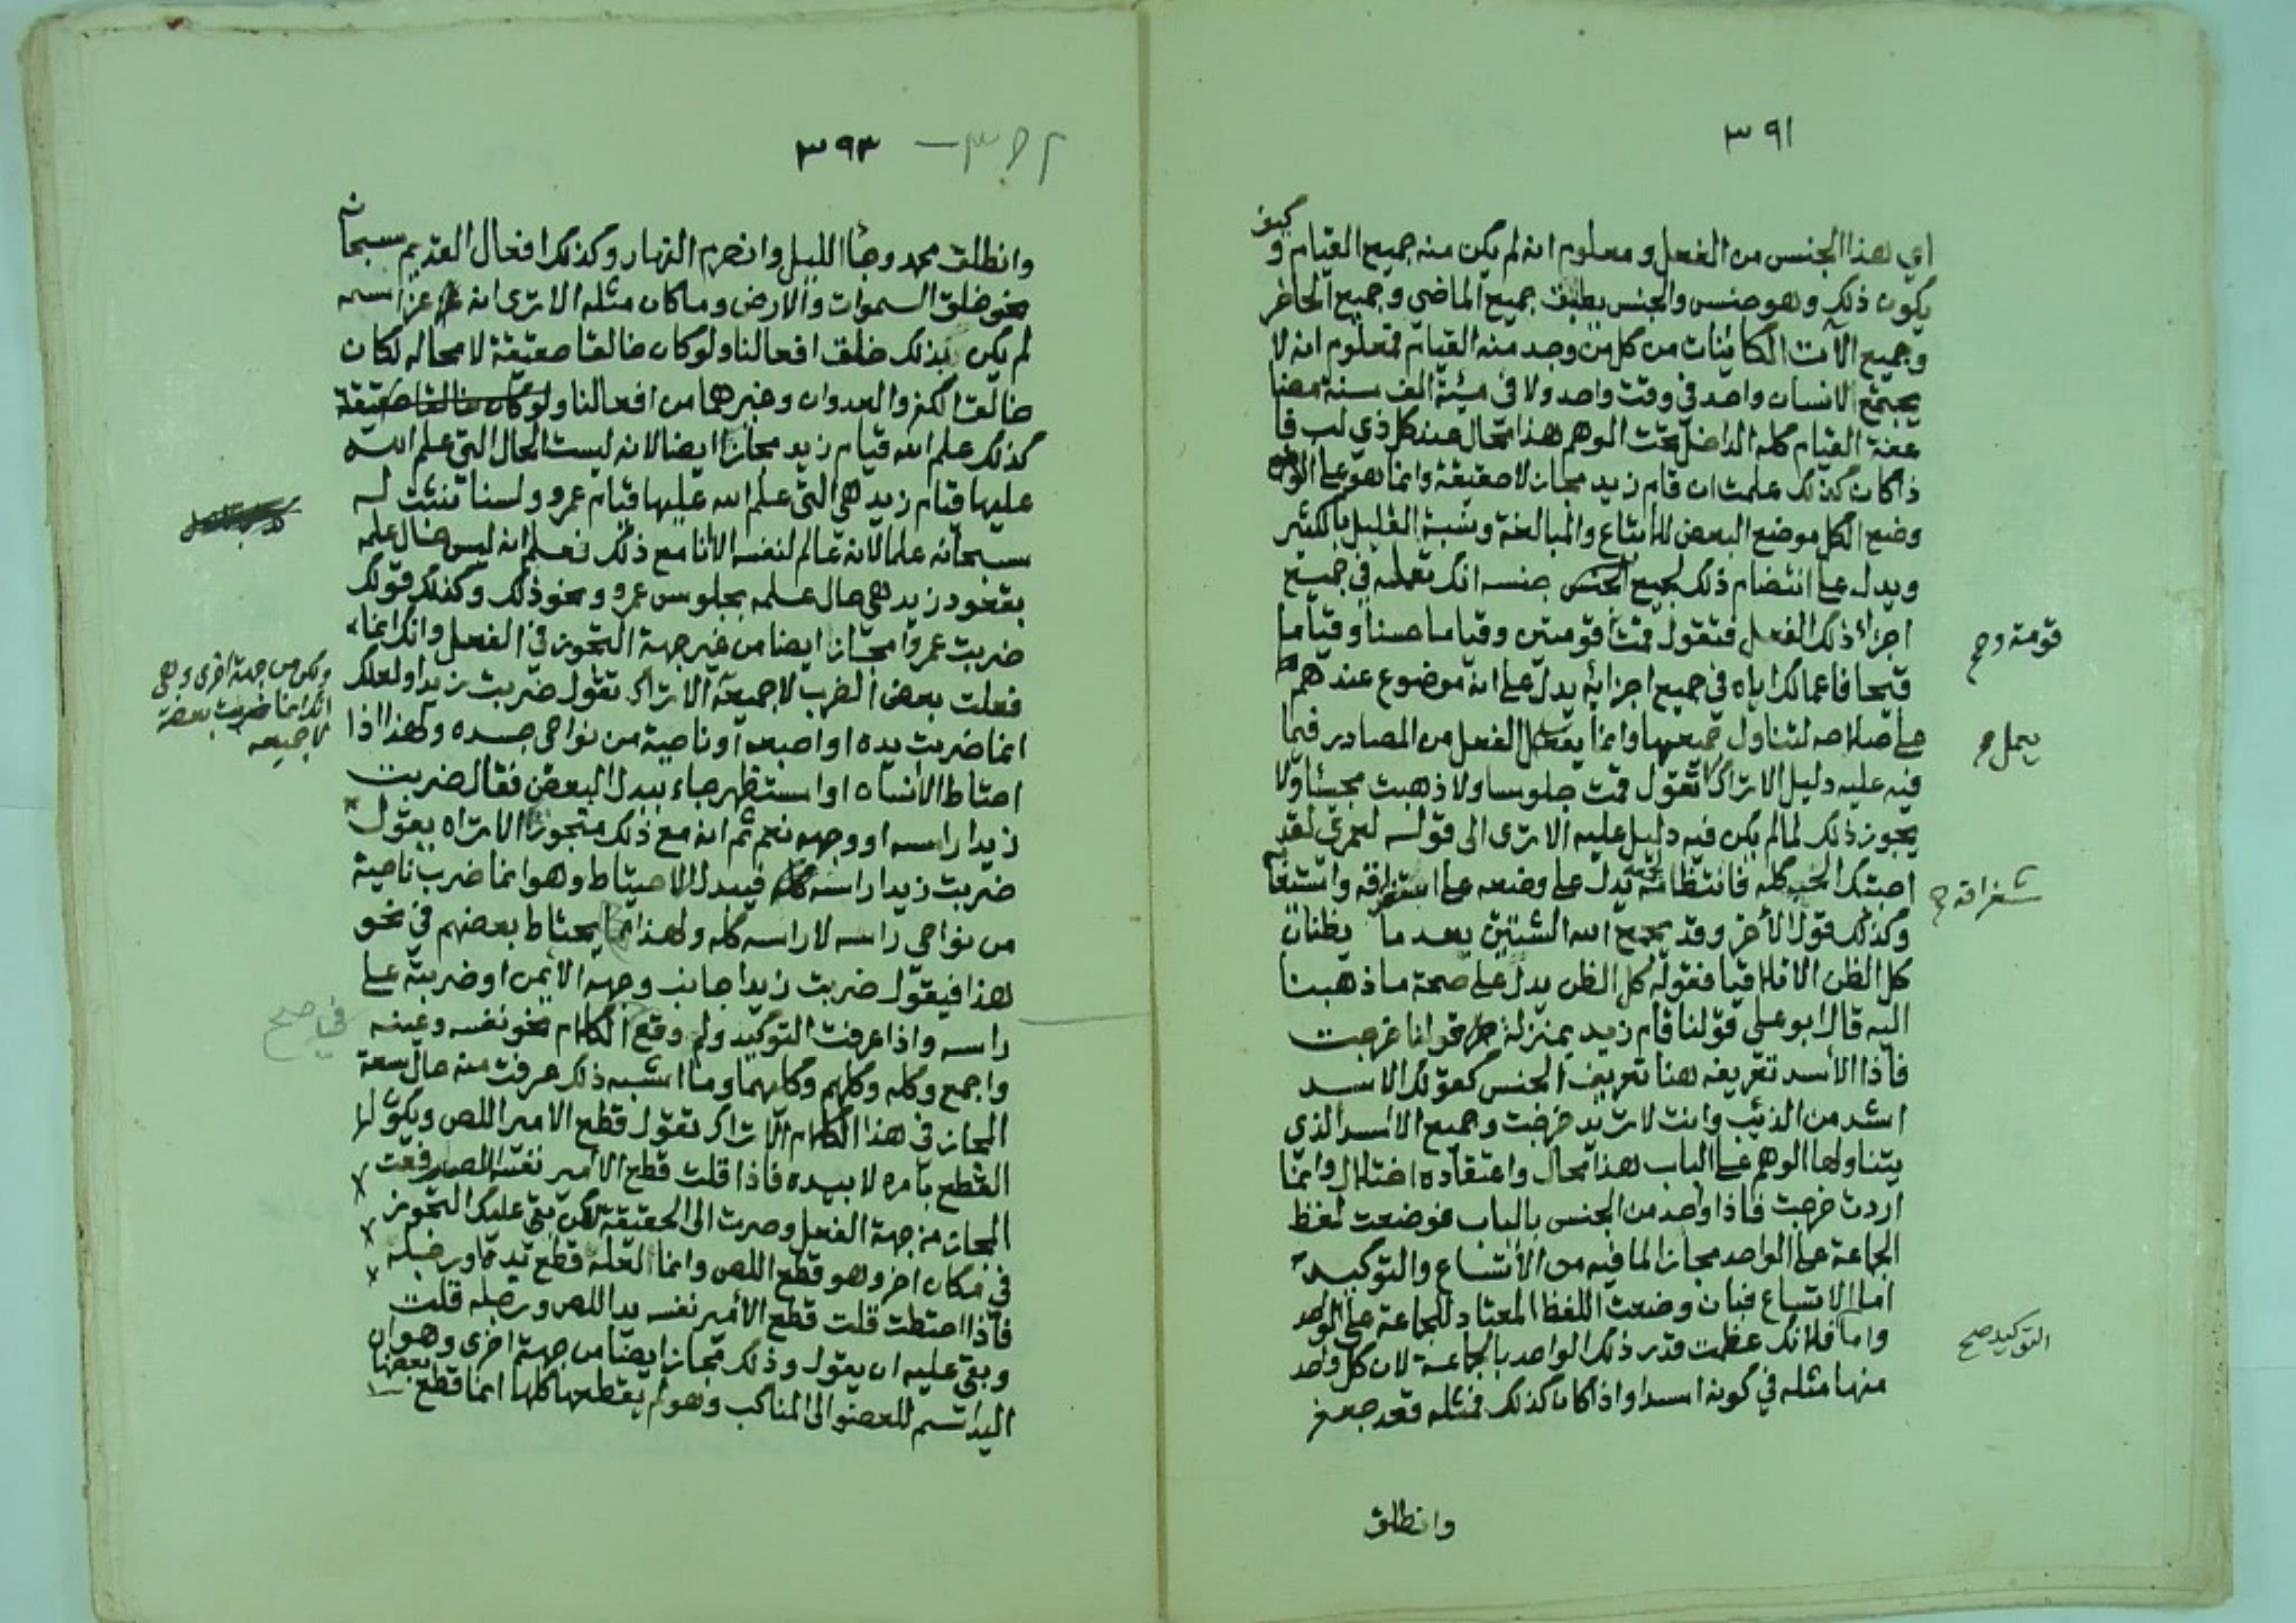 ٣٩١
اي هذا الجنس من الفعل ومعلوم انه لم يكن منه جميع القيام وكيف
يكون ذلك وهو جنس والجنس يطبق جميع الماضي وجميع الحاضر
وجميع الآت الكائنات من كل من وجد منه القيام فمعلوم انه لا
يجتمع لانسان واحد في وقت واحد ولا في مئة الف سنة مضا
عفة القيام كله الداخل تحت الوهم هذا محال عند كل ذي لب فا
ذا كان كذلك علمت ان قام زيد مجاز لا حقيقة وانما هو على
وضع الكل موضع البعض للاتساع والمبالغة وشبه القليل بالكثير
ويدل على انتضام ذلك لجميع جنسه انك تعمله في جميع
اجزاء ذلك الفعل فتقول قمت قومتين وقياما حسنا وقياما
قبيحا فاعمالك اياه في جميع اجزائه يدل على انه موضوع عندهم
على صلاحه لتناول جميعها وانما الفعل من المصادر فيما
فيه عليه دليل الا تراك لا تقول قمت جلوسا ولا ذهبت مجيئا ولا
يجوز ذلك لما لم يكن فيه دليل عليه الا ترى الى قوله لعمري لقد
احببتك الحب كله فانتظامه يدل على وضعه على استغراقه واستيفا
وكذلك قول الأخر وقد يجمع الله الشتيتين بعد ما يظنان
كل الظن الا تلاقيا فقوله كل الظن يدل على صحة ما ذهبنا
اليه قال ابو علي قولنا قام زيد بمنزلة قولنا خرجت
فاذا الأسد تعريفه هنا تعريف الجنس كقولك الاسد
اشد من الذئب وانت لا تريد خرجت وجميع الاسد الذي
يتناولها الوهم على الباب هذا محال واعتقاده اختلال وانما
اردت خرجت فاذا واحد من الجنس بالباب فوضعت لفظ
الجماعة على الواحد مجازا لما فيه من الاتساع والتوكيد
اما الاتساع فبان وضعت اللفظ المعتاد للجماعة على الواحد
واما فلانك عظمت قدر ذلك الواحد بالجماعة لان كل واحد
منها مثله في كونه اسدا واذا كان كذلك فمثله قعد جعفر
وانطلق
قومة وح
يعمل ح
ستغراقه ح
التوكيد صح
٣٩٢ – ٣٩٣
وانطلق محمد وجاء الليل وانصرم النهار وكذلك افعال القديم سبحانه
نحو خلق السموات والارض وما كان مثله الا ترى انه عز اسمه
لم يكن بذلك خلق افعالنا ولو كان خالقا حقيقة لا محالة لكان
خالق الكفر والعدوان وغيرهما من افعالنا ولو كان خالقا حقيقة
كذلك علم الله قيام زيد مجاز ايضا لانه ليست الحال التي علم الله
عليها قيام زيد هي التي علم الله عليها قيام عمرو ولسنا نثبت له
سبحانه علما لانه عالم لنفسه الا انا مع ذلك نعلم انه ليس حال علمه
بقعود زيد هي حال علمه بجلوس عمرو ونحو ذلك وكذلك قولك
ضربت عمروا مجاز ايضا من غير جهة التجوز في الفعل وانك انما
فعلت بعض الضرب لا جميعه الا تراك تقول ضربت زيدا ولعلك
انما ضربت يده او اصبعه او ناحية من نواحي جسده ولهذا اذا
احتاط الانسان او استظهر جاء ببدل البعض فقال ضربت
زيدا راسه او وجهه نعم ثم انه مع ذلك متجوز الا تراه يقول
ضربت زيدا راسه فيبدل للاحتياط وهو انما ضرب ناحية
من نواحي راسه لا راسه كله ولهذا يحتاط بعضهم في نحو
هذا فيقول ضربت زيدا جانب وجهه الأيمن او ضربته على
راسه واذا عرفت التوكيد ولم وقع الكلام نحو نفسه وعينه
واجمع وكله وكلهم وكليهما وما اشبه ذلك عرفت منه حال سعة
المجاز في هذا الكلام الا تراك تقول قطع الامير اللص ويكون لها
القطع بامره لا بيده فاذا قلت قطع الأمير نفسه اللص رفعت
المجاز من جهة الفعل وصرت الى الحقيقة لكن بقي عليك التجوز
في مكان اخر وهو قطع اللص وانما لعله قطع يده او رجله
فاذا احتطت قلت قطع الأمير نفسه يد اللص ورجله قلت
وبقي عليه ان يقول وذلك مجاز ايضا من جهة اخرى وهو ان
اليد اسم للعضو الى المناكب وهو لم يقطعها كلها انما قطع بعضها
ولكن من جهة اخرى وهي
انك انما ضربت بعضه
لا جميعه
في صح